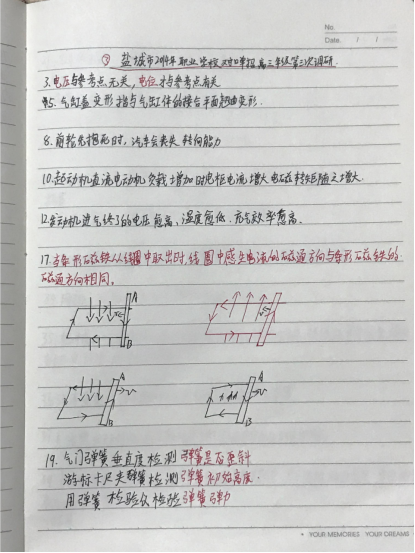 No.
Date.    /    /
② 盐城市2019年职业学校对口单招高三年级第三次调研.
3.电压与参考点无关,电位才与参考点有关
5.气缸盖变形指与气缸体的接合平面翘曲变形.
8.前轮先抱死时,汽车会丧失转向能力
10.起动机直流电动机负载增加时电枢电流增大电磁转矩随之增大.
12.发动机进气终了的电压愈高、温度愈低.充气效率愈高.
17.当条形磁铁从线圈中取出时,线圈中感生电流的磁通方向与条形磁铁的
磁通方向相同。
A
B
A
B
A
B
19.气门弹簧垂直度检测弹簧是否歪斜
游标卡尺夹弹簧检测弹簧初始高度.
用弹簧检验仪检验弹簧弹力
YOUR MEMORIES  YOUR DREAMS